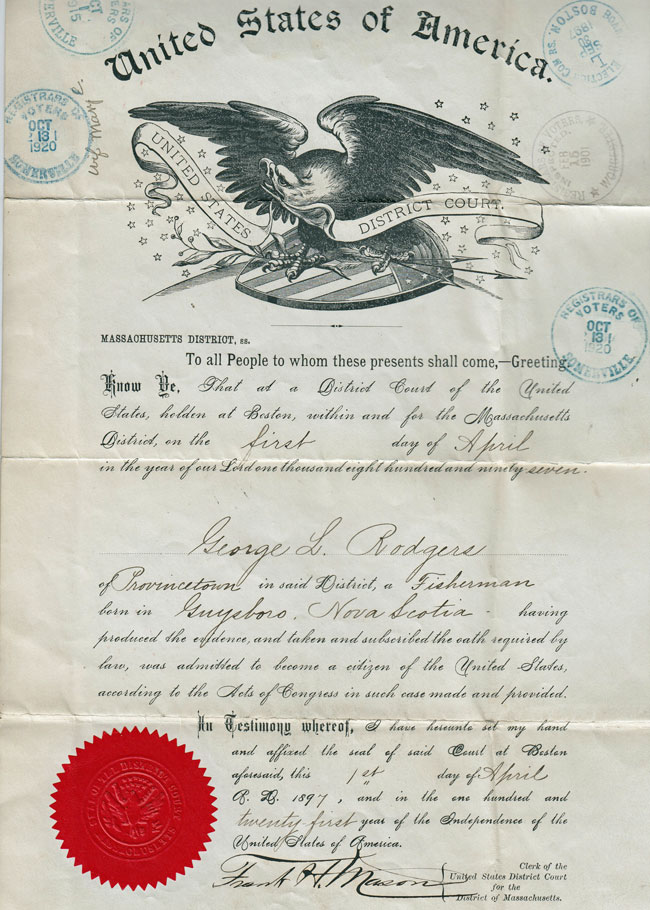 United States of America.
REGISTRARS OF
VOTERS
OCT
13
1920
SOMERVILLE
wf Mary E.
UNITED STATES
DISTRICT COURT.
REGISTRARS OF
VOTERS
OCT
13
1920
SOMERVILLE.
MASSACHUSETTS DISTRICT, ss.
To all People to whom these presents shall come,—Greeting.
Know Ye, That at a District Court of the United
States, holden at Boston, within and for the Massachusetts
District, on the first day of April
in the year of our Lord one thousand eight hundred and ninety seven.
George L. Rodgers
of Provincetown in said District, a Fisherman
born in Guysboro, Nova Scotia - having
produced the evidence, and taken and subscribed the oath required by
law, was admitted to become a citizen of the United States,
according to the Acts of Congress in such case made and provided.
In Testimony whereof, I have hereunto set my hand
and affixed the seal of said Court at Boston
aforesaid, this 1st day of April
A. D. 1897, and in the one hundred and
twenty first year of the Independence of the
United States of America.
Frank H. Mason
Clerk of the
United States District Court
for the
District of Massachusetts.